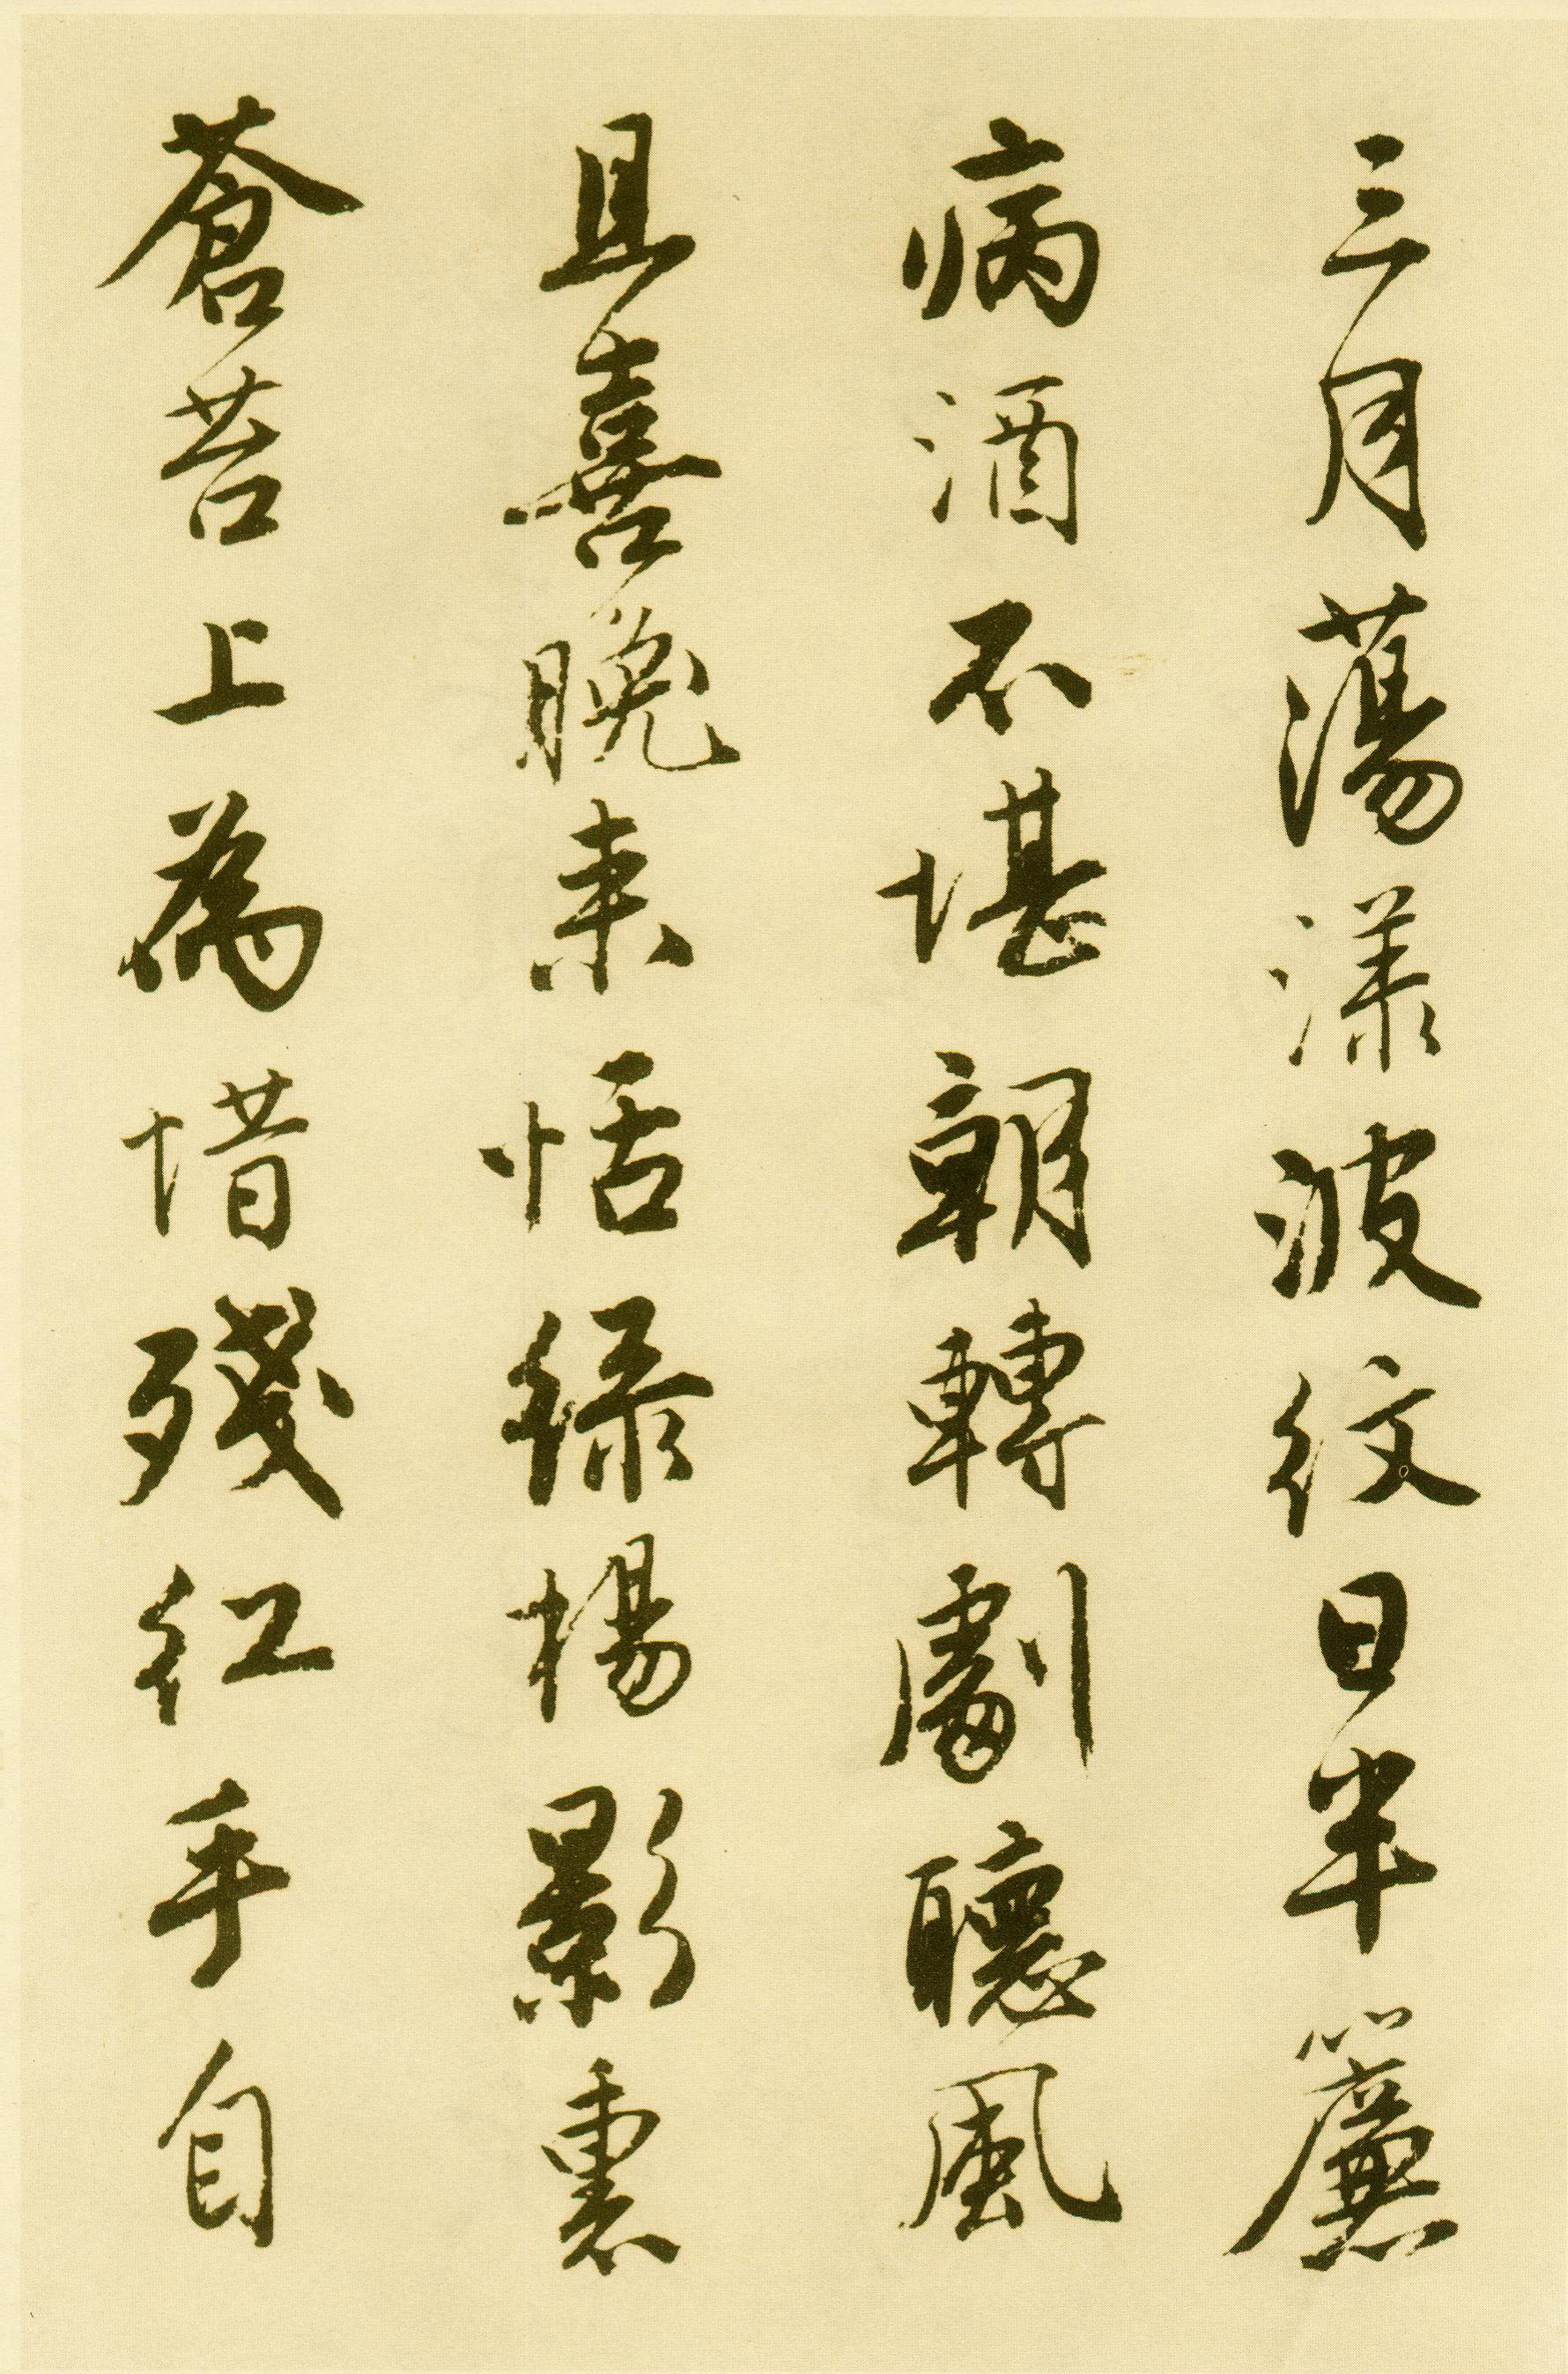 三月蕩漾波紋日半簾
病酒不堪朝轉劇聽風
且喜晚来恬緑楊影裏
蒼苔上為惜殘紅手自